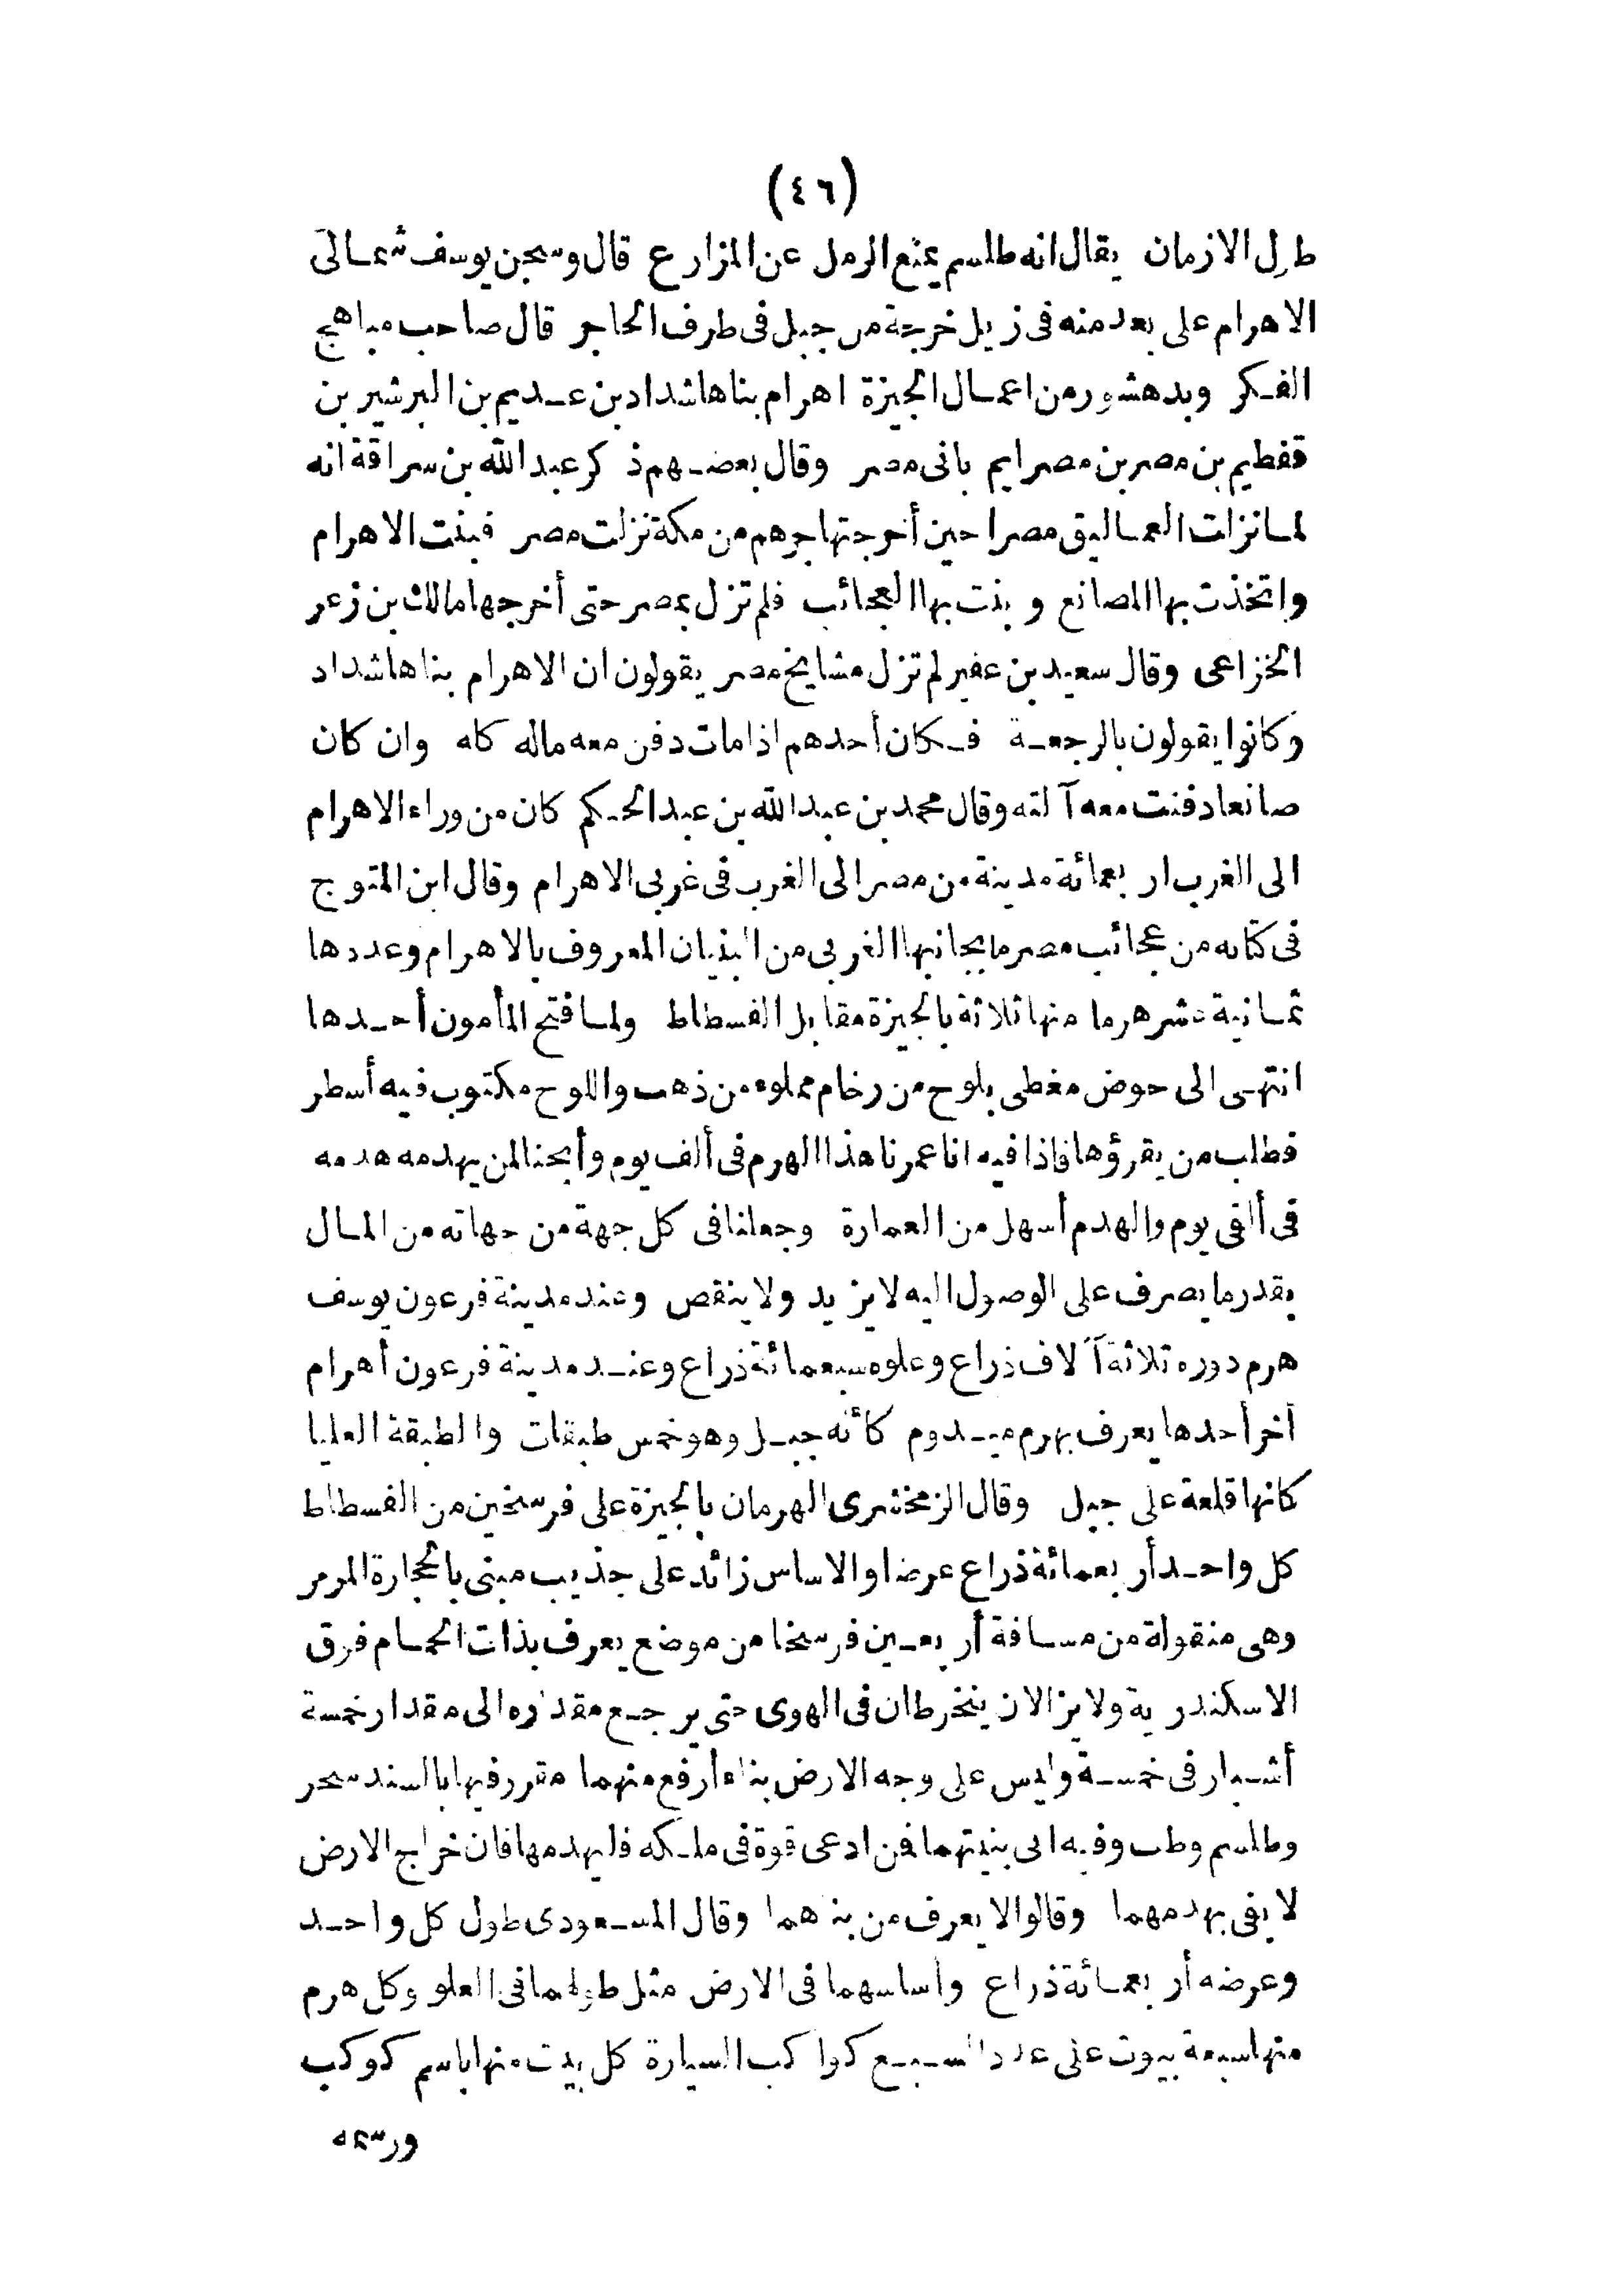 (٤٦)
طول الازمان يقال انه طلسم يمنع الرمل عن المزارع قال وسجن يوسف شمالى
الاهرام على بعد منه فى ذيل خرجة من جبل فى طرف الحاجر قال صاحب مباهج
الفكر وبدهشور من اعمال الجيزة اهرام بناها شداد بن عديم بن البرشير بن
قفطيم بن مصر بن مصرايم بانى مصر وقال بعضهم ذكر عبد الله بن سراقة انه
لما نزلت العماليق مصرا حين أخرجتها جرهم من مكة نزلت مصر فبنت الاهرام
واتخذت بها المصانع وبنت بها العجائب فلم تزل بمصر حتى أخرجها مالك بن زعر
الخزاعى وقال سعيد بن عفير لم تزل مشايخ مصر يقولون ان الاهرام بناها شداد
وكانوا يقولون بالرجعة فكان أحدهم اذا مات دفن معه ماله كله وان كان
صانعا دفنت معه آلته وقال محمد بن عبد الله بن عبد الحكم كان من وراء الاهرام
الى الغرب اربعمائة مدينة من مصر الى الغرب فى غربى الاهرام وقال ابن المتوج
فى كتابه من عجائب مصر ما بجانبها الغربى من البنيان المعروف بالاهرام وعددها
ثمانية عشر هرما منها ثلاثة بالجيزة مقابل الفسطاط ولما فتح المأمون أحدها
انتهى الى حوض مغطى بلوح من رخام مملوء من ذهب واللوح مكتوب فيه أسطر
فطلب من يقرؤها فاذا فيه انا عمرنا هذا الهرم فى ألف يوم وأبحنا لمن يهدمه هدمه
فى ألفى يوم والهدم أسهل من العمارة وجعلنا فى كل جهة من جهاته من المال
بقدر ما يصرف على الوصول اليه لا يزيد ولا ينقص وعند مدينة فرعون يوسف
هرم دوره ثلاثة آلاف ذراع وعلوه سبعمائة ذراع وعند مدينة فرعون أهرام
أخر أحدها يعرف بهرم ميدوم كأنه جبل وهو خمس طبقات والطبقة العليا
كانها قلعة على جبل وقال الزمخشرى الهرمان بالجيزة على فرسخين من الفسطاط
كل واحد أربعمائة ذراع عرضا والاساس زائد على جذيب مبنى بالحجارة المرمر
وهى منقولة من مسافة أربعين فرسخا من موضع يعرف بذات الحمام فوق
الاسكندرية ولا يزالان ينخرطان فى الهوى حتى يرجع مقداره الى مقدار خمسة
أشبار فى خمسة وليس على وجه الارض بناء أرفع منهما مقرر فيها بالسند سحر
وطلسم وطب وفيه انى بنيتهما فمن ادعى قوة فى ملكه فليهدمها فان خراج الارض
لا يفى بهدمهما وقالوا لا يعرف من بناهما وقال المسعودى طول كل واحد
وعرضه أربعمائة ذراع وأساسهما فى الارض مثل طولهما فى العلو وكل هرم
منها سبعة بيوت على عدد السبع كواكب السيارة كل بيت منها باسم كوكب
ورسمه